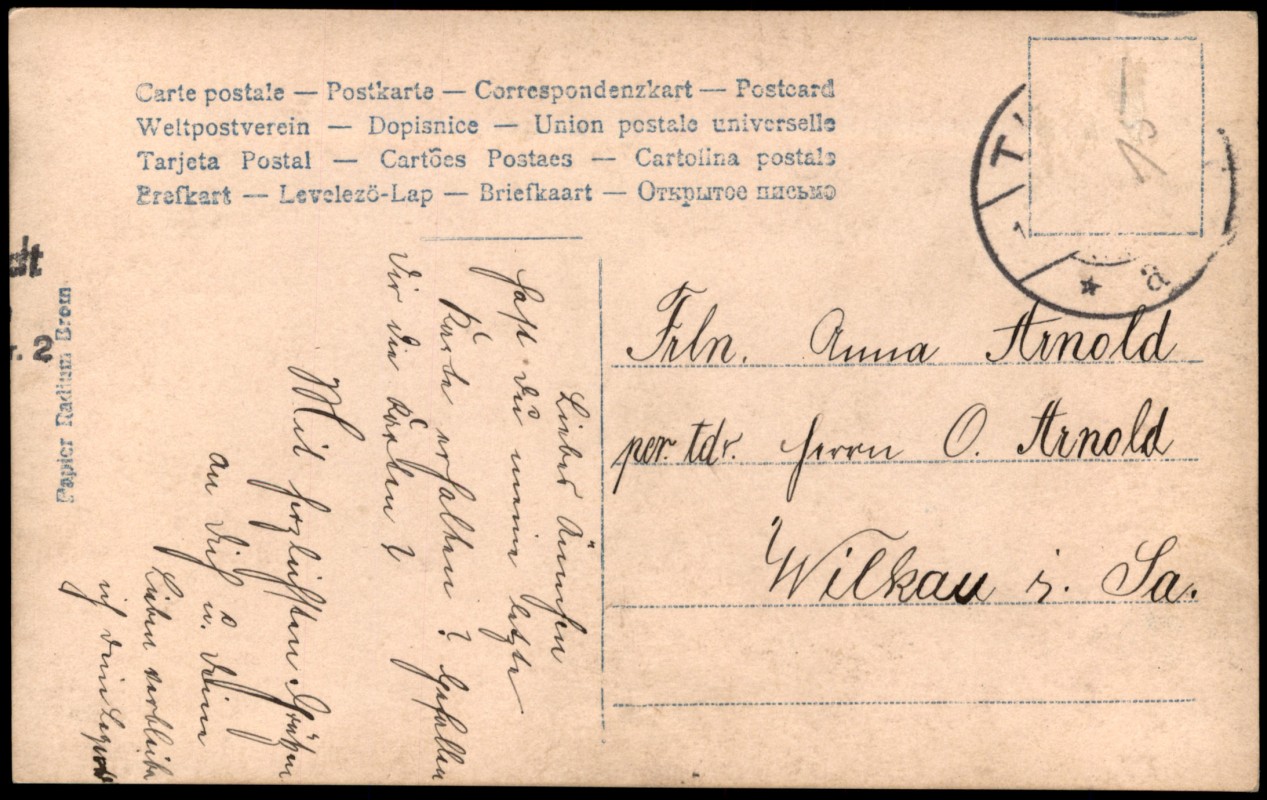 Carte postale — Postkarte — Correspondenzkart — Postcard
Weltpostverein — Dopisnice — Union postale universelle
Tarjeta Postal — Cartões Postaes — Cartolina postale
Brefkart — Levelező-Lap — Briefkaart — Открытое письмо
15
T
1
* a
dt
r. 2
Papier Radium Brom
Frln. Anna Arnold
per. Adr. Herrn O. Arnold
Wilkau i. Sa.
Liebes Ännchen
Hast Du meine letzte
Karte erhalten? Gefallen
Dir die Karten?
Mit herzlichsten Grüßen
an Dich u. Deine
Lieben verbleibe
ich Dein